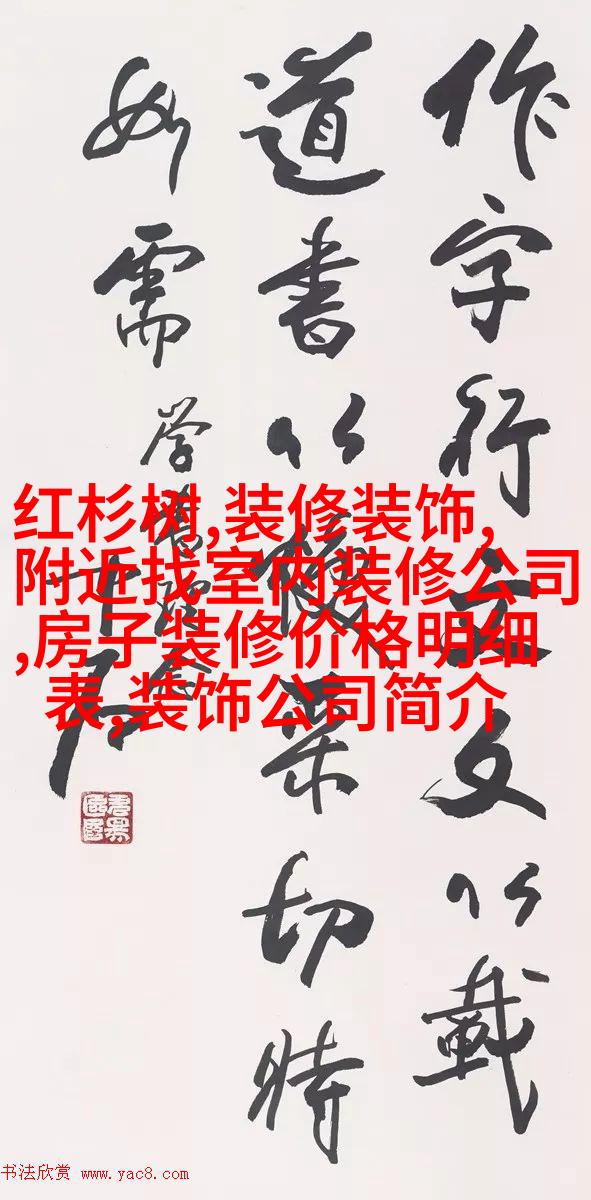 作字行文文以載
道書以煥采切時
如需
红杉树,装修装饰,
附近找室内装修公司
,房子装修价格明细
表,装饰公司简介
书法欣赏 www.yac8.com